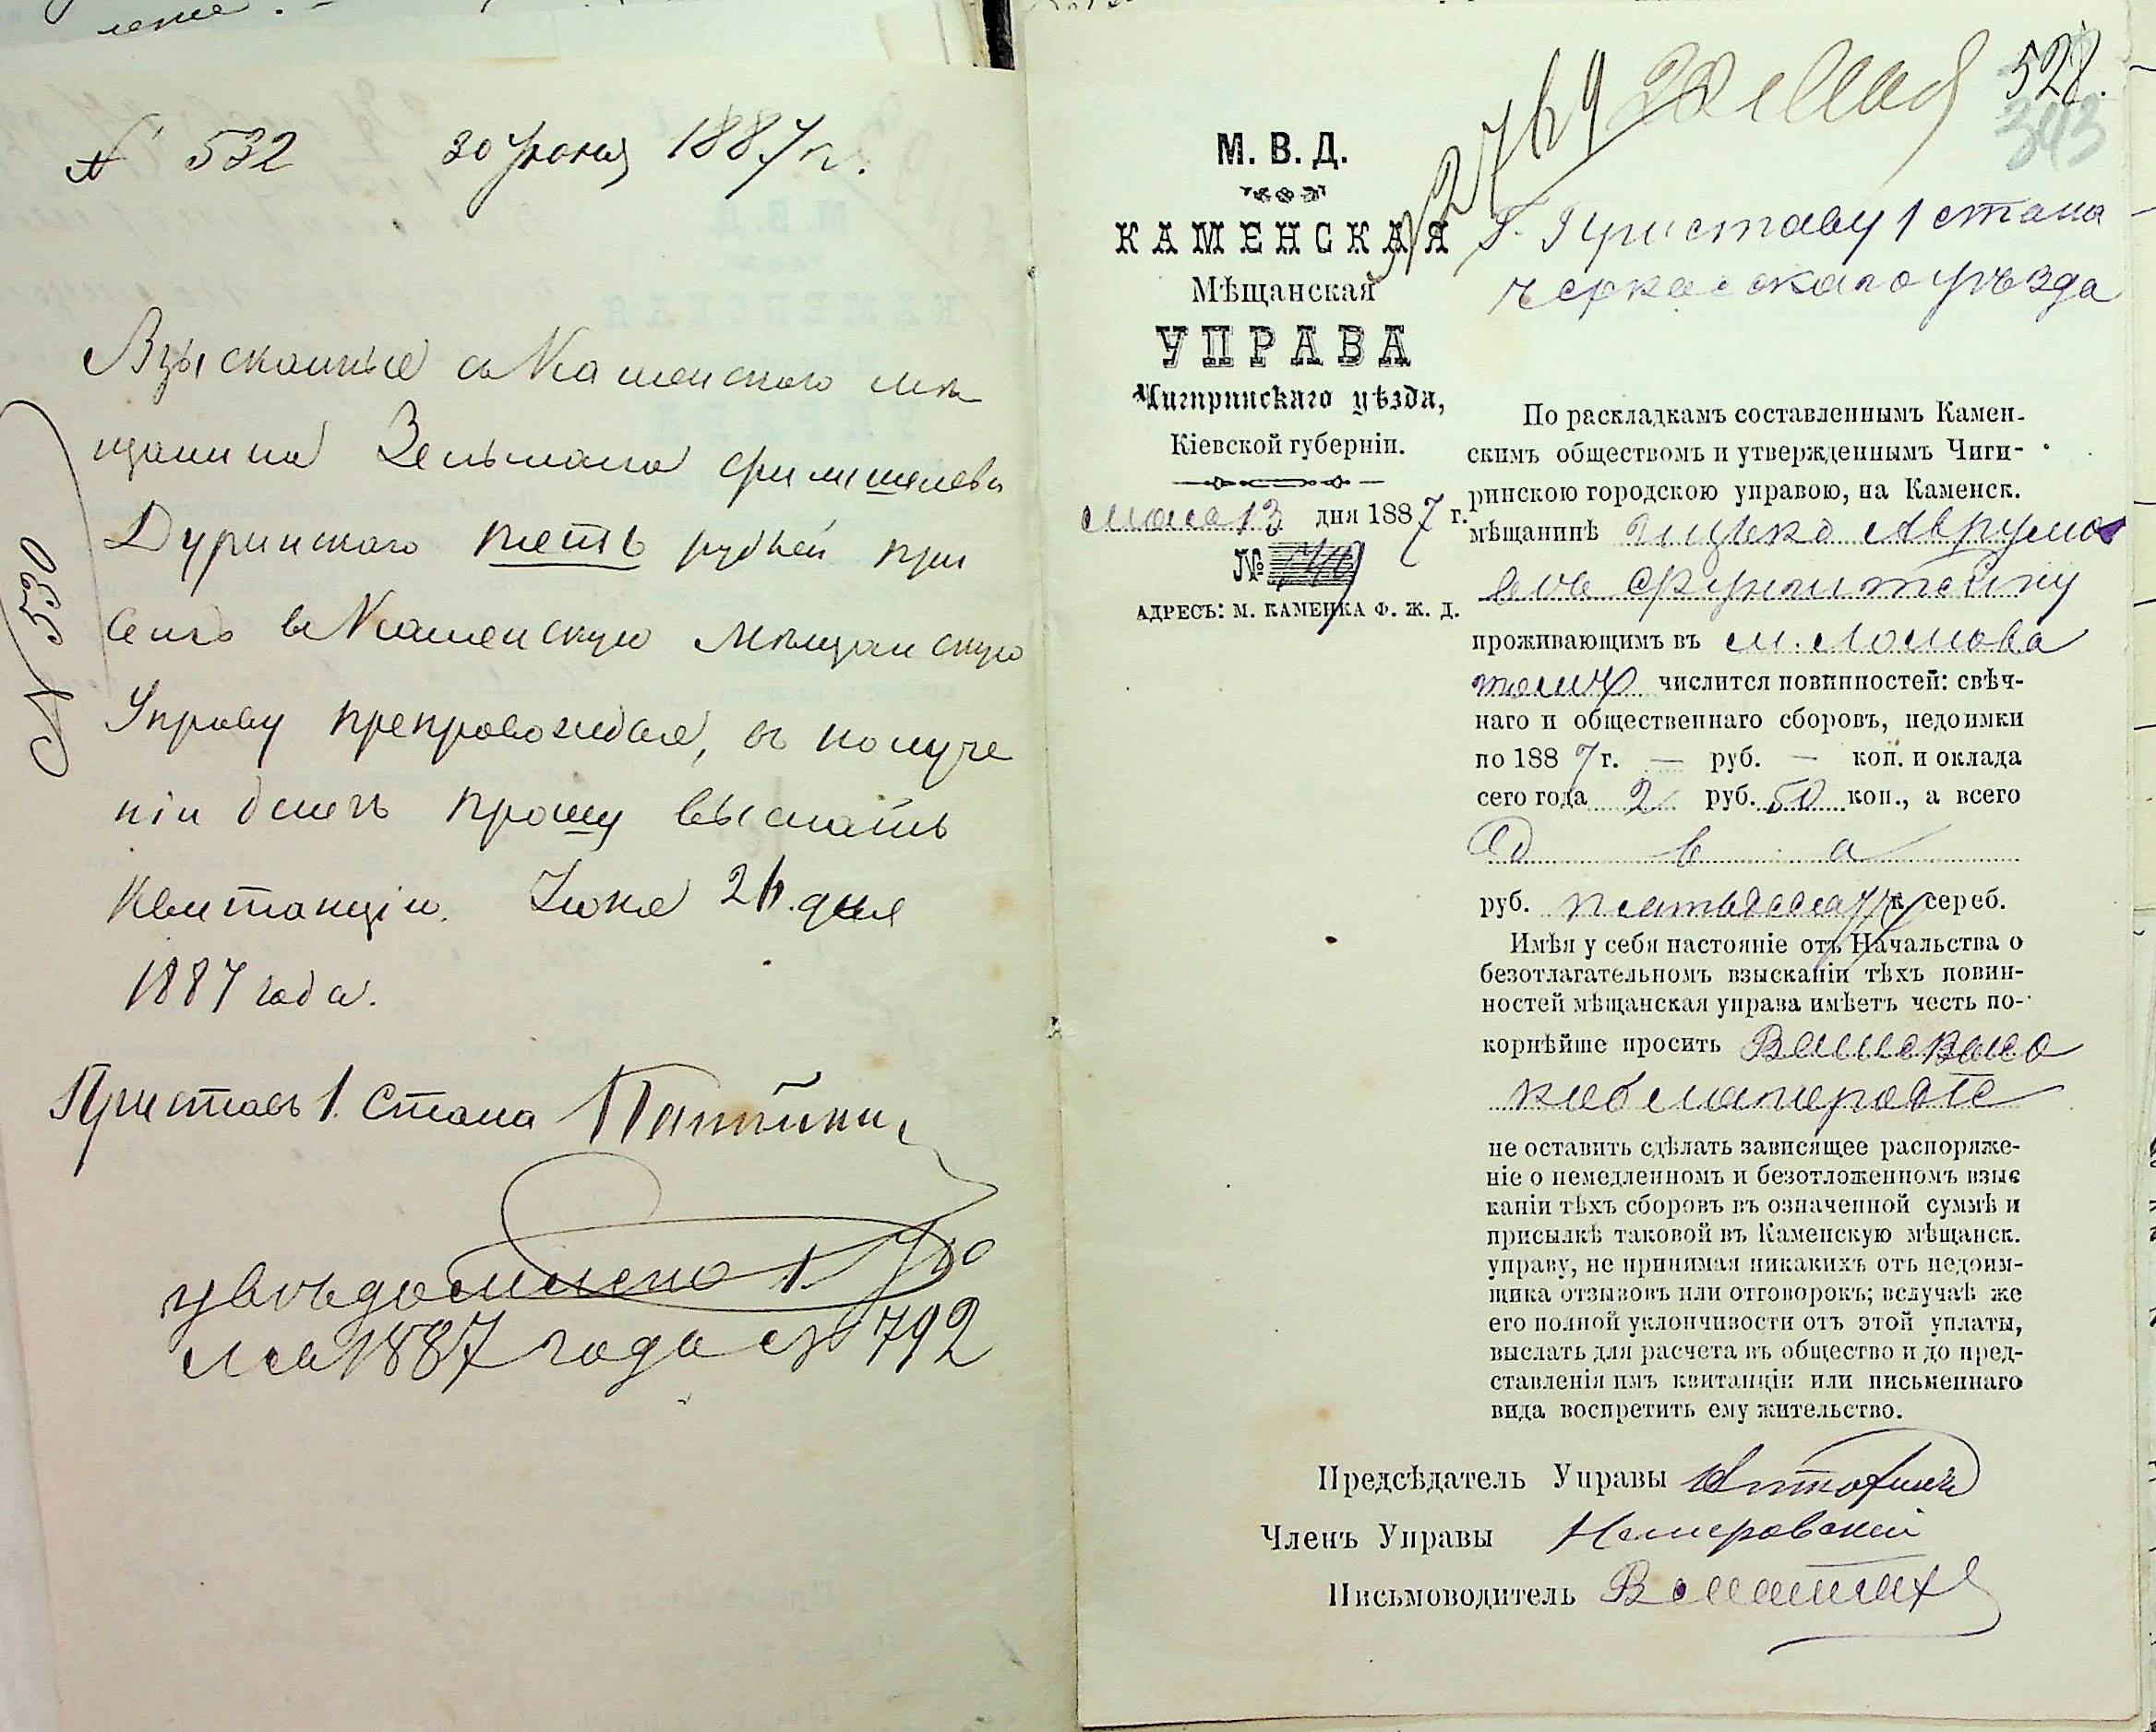 № 532 30 Іюня 1887 г.
Взысканные съ Каменскаго мѣ
щанина Зельмана
Дуринскаго пять рублей при
семъ въ Каменскую Мѣщанскую
Управу препровождая, въ получе
ніи денегъ прошу выслать
Квитанцію. Іюня дня
1887 года.
Приставъ 1. Стана
увѣдомлено 1. Ію
ля 1887 года № 792
№ 530
528.
343
№ 2769 28 Мая
М. В. Д.
КАМЕНСКАЯ
Мѣщанская
УПРАВА
Чигиринскаго уѣзда,
Кіевской губерніи.
мая 13 дня 1887 г.
№ 749
АДРЕСЪ: М. КАМЕНКА Ф. Ж. Д.
Г. Приставу 1 стана
черкасскаго уѣзда
По раскладкамъ составленнымъ Камен-
скимъ обществомъ и утвержденнымъ Чиги-
ринскою городскою управою, на Каменск.
мѣщанинѣ Ицько Аврумо
вичъ
проживающимъ въ м.
числится повинностей: свѣч-
наго и общественнаго сборовъ, недоимки
по 1887 г. — руб. — коп. и оклада
сего года 2 руб. 50 коп., а всего
Два
руб. пятьдесят к. сереб.
Имѣя у себя настояніе отъ Начальства о
безотлагательномъ взысканіи тѣхъ повин-
ностей мѣщанская управа имѣетъ честь по-
корнѣйше просить Ваше Высо
коблагородіе
не оставить сдѣлать зависящее распоряже-
ніе о немедленномъ и безотложенномъ взыс
каніи тѣхъ сборовъ въ означенной суммѣ и
присылкѣ таковой въ Каменскую мѣщанск.
управу, не принимая никакихъ отъ недоим-
щика отзывовъ или отговорокъ; вслучаѣ же
его полной уклончивости отъ этой уплаты,
выслать для расчета въ общество и до пред-
ставленія имъ квитанціи или письменнаго
вида воспретить ему жительство.
Предсѣдатель Управы
Членъ Управы
Письмоводитель